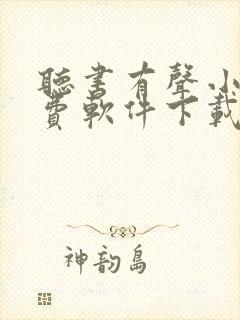 聽書有聲小
費軟件下載
神韵島